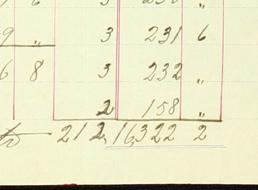 9 " 3 231 6
6 8 3 232 "
2 158 "
212, 16,322 2